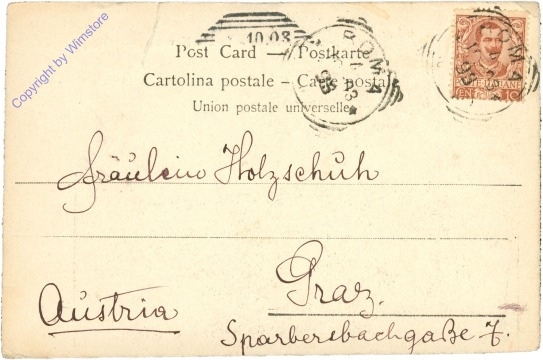 Copyright by Wimstore
10.03
ROMA
ROMA
Post Card — Postkarte
Cartolina postale – Carte postale
Union postale universelle
Fräulein Holzschuh
Graz.
Austria
Sparbersbachgaße 7.